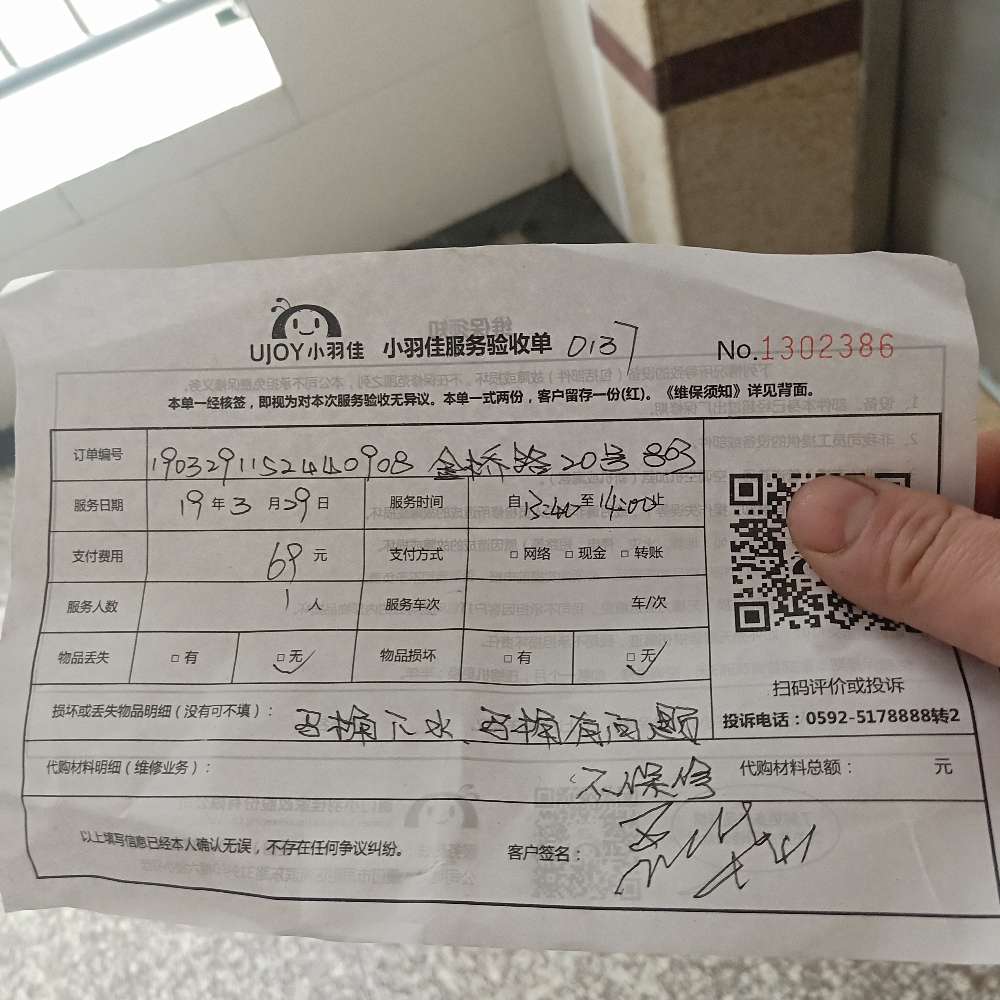 UJOY小羽佳 小羽佳服务验收单 0137 No.1302386
本单一经核签，即视为对本次服务验收无异议。本单一式两份，客户留存一份(红)。《维保须知》详见背面。
订单编号 1903291152440908 金桥路20号 803
服务日期 19年3月29日 服务时间 自13:40至14:00止
支付费用 69元 支付方式 □网络 □现金 □转账
服务人数 1人 服务车次 车/次
物品丢失 □有 □无✓ 物品损坏 □有 □无✓
扫码评价或投诉
投诉电话：0592-5178888转2
损坏或丢失物品明细（没有可不填）： 马桶下水、马桶有问题
不保修
代购材料明细（维修业务）： 代购材料总额： 元
以上填写信息已经本人确认无误，不存在任何争议纠纷。 客户签名：